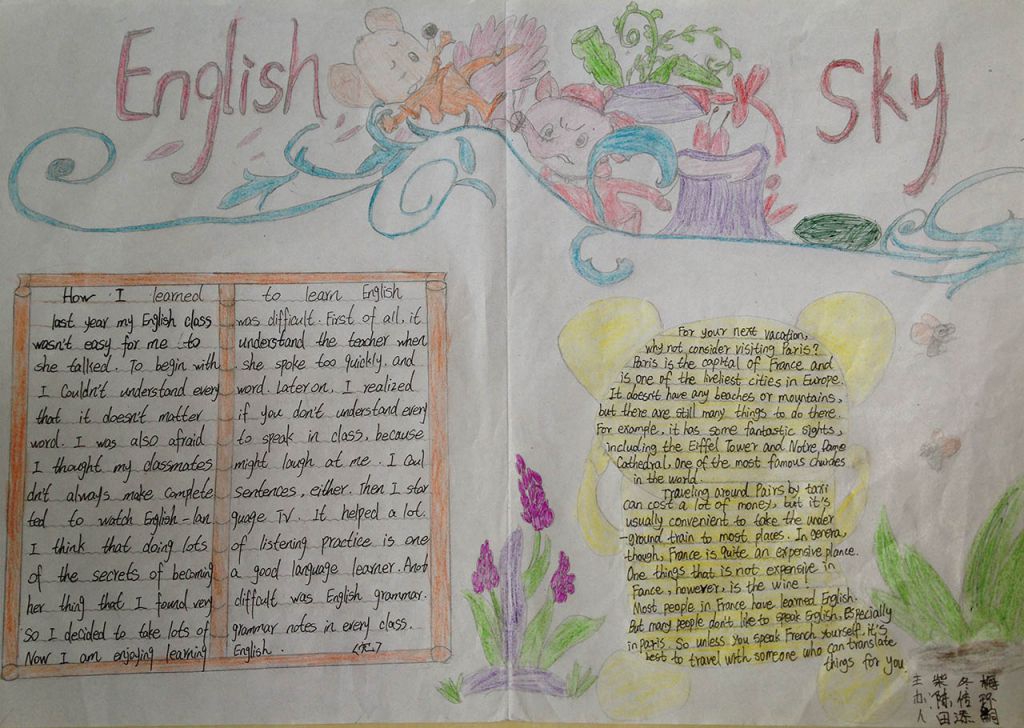 English Sky
How I learned to learn English
last year my English class was difficult. First of all, it
wasn't easy for me to understand the teacher when
she talked. To begin with she spoke too quickly, and
I Couldn't understand every word. Later on, I realized
that it doesn't matter if you don't understand every
word. I was also afraid to speak in class, because
I thought my classmates might laugh at me. I Coul
dn't always make complete sentences, either. Then I star
ted to watch English-lan guage TV. It helped a lot.
I think that doing lots of listening practice is one
of the secrets of becoming a good language learner. Anot
her thing that I found very difficult was English grammar.
So I decided to take lots of grammar notes in every class.
Now I am enjoying learning English. <完>
For your next vacation,
why not consider visiting Paris?
Paris is the capital of France and
is one of the liveliest cities in Europe.
It doesn't have any beaches or mountains,
but there are still many things to do there.
For example, it has some fantastic sights,
including the Eiffel Tower and Notre Dame
Cathedral, one of the most famous churches
in the world.
Traveling around Pairs by taxi
can cost a lot of money, but it's
usually convenient to take the under
-ground train to most places. In genera,
though, France is quite an expensive plance.
One things that is not expensive in
Fance, however, is the wine!
Most people in France have learned English.
But many people don't like to speak English, Especially
in paris. So unless you speak French yourself, it's
best to travel with someone who can translate
things for you.
主 柴 冬 梅
办 陈
人 田 添